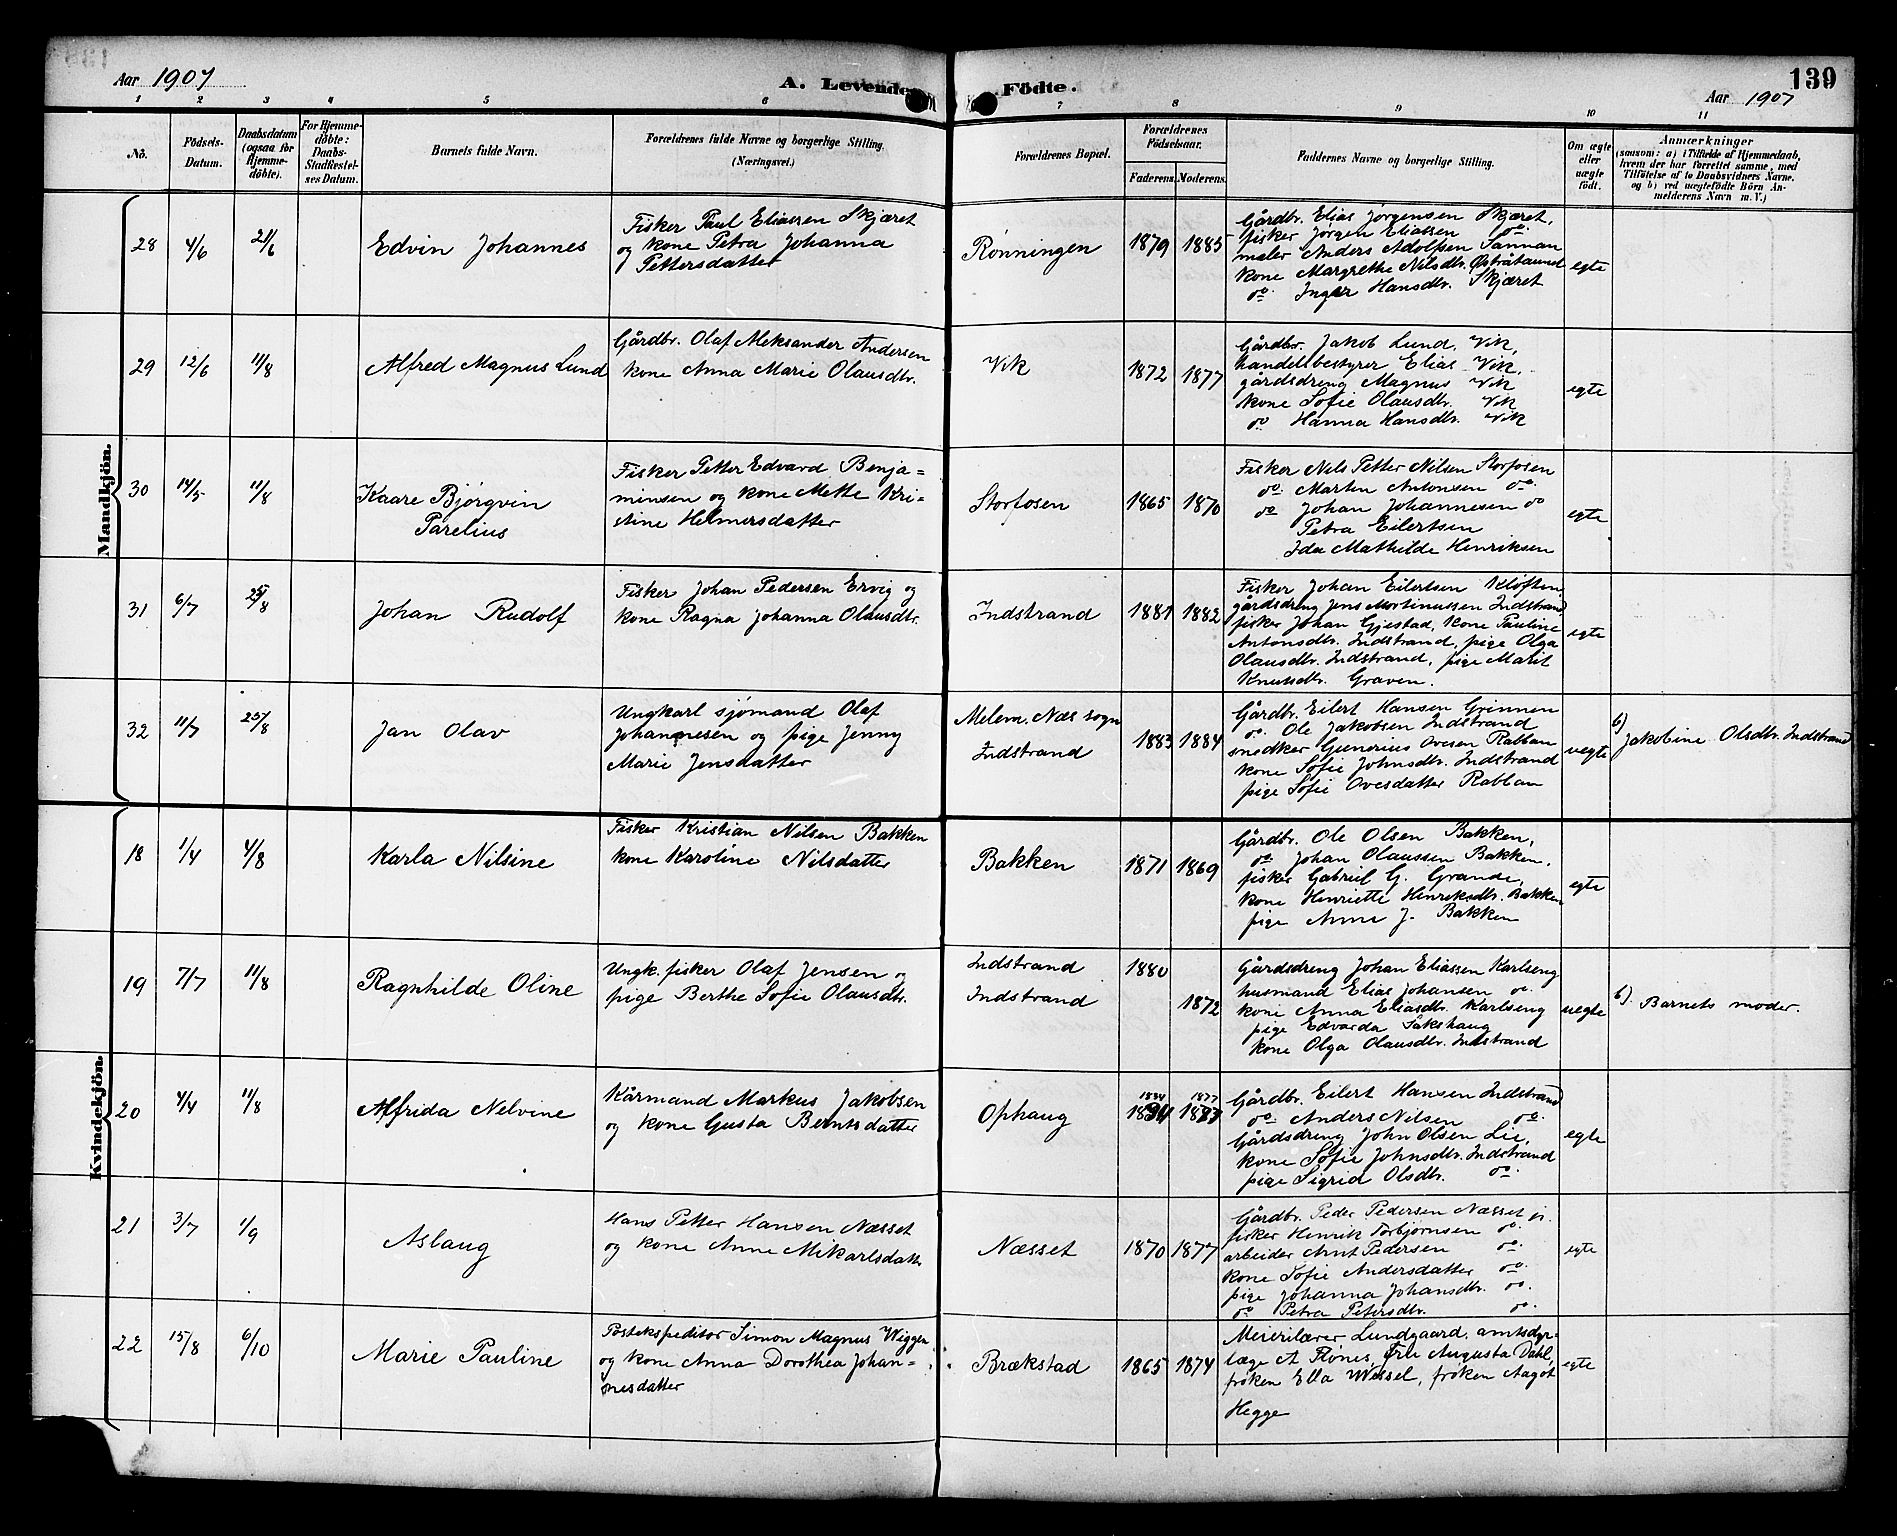 Aar 1907
A. Levende Födte.
139
Aar 1907
1 2 3 4 5 6 7 8 9 10 11
No.
Födsels-Datum.
Daabsdatum (ogsaa for Hjemmedöbte).
For Hjemmedöbte: Daabs-Stadfæstelses Datum.
Barnets fulde Navn.
Forældrenes fulde Navne og borgerlige Stilling. (Næringsvei.)
Forældrenes Bopæl.
Forældrenes Födselsaar.
Faderens. Moderens.
Faddernes Navne og borgerlige Stilling.
Om ægte eller uægte födt.
Anmærkninger
(saasom: a) i Tilfælde af Hjemmedaab, hvem der har forrettet samme, med Tilföielse af to Daabsvidners Navne. og b) ved uægtefödte Börn Anmelderens Navn m. V.)
Mandkjön.
28 4/6 21/6 Edvin Johannes
Fisker Paul Eliassen Skjæret
og kone Petra Johanna
Pettersdatter
Rønningen 1879 1885
Gårdbr. Elias Jørgensen Skjæret,
fisker Jörgen Eliassen do.
maler Anders Adolfsen Sannan
kone Margrethe Nilsdtr. Østråtsund
do. Inger Hansdtr. Skjæret
egte
29 12/6 11/8 Alfred Magnus Lund
Gårdbr. Olaf Aleksander Andersen
kone Anna Marie Olausdtr.
Vik 1872 1877
Gårdbr. Jakob Lund, Vik,
handelsbestyrer Elias Vik,
gårdsdreng Magnus Vik
kone Sofie Olausdtr. Vik
do Hanna Hansdtr. Vik
egte
30 14/5 11/8 Kaare Bjørgvin
Parelius
Fisker Petter Edvard Benja=
minsen og kone Mette Kri=
stine Helmersdatter
Storfosen 1865 1870
Fisker Nils Petter Nilsen Storfosen
do. Martin Antonsen do.
do Johan Johannesen do
Petra Eilertsen
Ida Mathilde Henriksen
egte
31 6/7 25/8 Johan Rudolf
Fisker Johan Pedersen Ervig og
kone Ragna Johanna Olausdtr.
Indstrand 1881 1882
Fisker Johan Eilertsen Kløften
gårdsdreng Jens Mortinussen Indstrand
fisker Johan Gjestad, kone Pauline
Antonsdtr. Indstrand, pige Olga
Olausdtr. Indstrand, pige Marit
Knutsdtr. Graven.
egte
32 11/7 25/8 Jan Olav
Ungkarl sjømand Olaf
Johannesen og pige Jenny
Marie Jensdatter
Melem, Næs sogn
Indstrand
1883 1884
Gårdbr. Eilert Hansen Grinnen
do. Ole Jakobsen Indstrand
snedker Gunerius Ovesen Rabban
kone Sofie Johnsdtr. Indstrand
pige Sofie Ovesdatter Rabban
uegte
b) Jakobine Olsdtr. Indstrand
Kvindekjön.
18 1/4 4/8 Karla Nilsine
Fisker Kristian Nilsen Bakken
kone Karoline Nilsdatter
Bakken 1871 1869
Gårdbr. Ole Olsen Bakken,
do. Johan Olaussen Bakken,
fisker Gabriel G. Grande,
kone Henriette Henriksdtr. Bakken
pige Anne J. Bakken
egte
19 7/7 11/8 Ragnhilde Oline
Ungk. fisker Olaf Jensen og
pige Berthe Sofie Olausdtr.
Indstrand 1880
Indstrand 1872
Gårdsdreng Johan Eliassen Karlseng
husmand Elias Johansen do.
kone Anna Eliasdtr. Karlseng
pige Edvarda Sakshaug
kone Olga Olausdtr. Indstrand
uegte
b). Barnets moder.
20 4/4 11/8 Alfrida Nelvine
Kårmand Markus Jakobsen
og kone Gusta Berntsdatter
Ophaug 1877
Gårdbr. Eilert Hansen Indstrand
do. Anders Nilsen do.
Gårdsdreng John Olsen Lie,
kone Sofie Johnsdtr. Indstrand
pige Sigrid Olsdtr. do.
egte
21 3/7 1/9 Aslaug
Hans Petter Hansen Næsset
og kone Anne Mikarlsdatter
Næsset 1870 1877
Gårdbr. Peder Pedersen Næsset jr.
fisker Henrik Torbjørnsen do.
arbeider Arnt Pedersen do.
kone Sofie Andersdatter do.
pige Johanna Johansdtr. do.
do Petra Petersdtr. do.
egte
22 15/8 6/10 Marie Pauline
Postekspeditør Simon Magnus Wiggen
og kone Anna Dorothea Johan=
nesdatter
Brækstad 1865 1874
Meierilærer Lundgaard, amtsdyr=
læge A Rönes, Fru Augusta Dahl,
frøken Ella Wessel, frøken Aagot
Hegge
egte